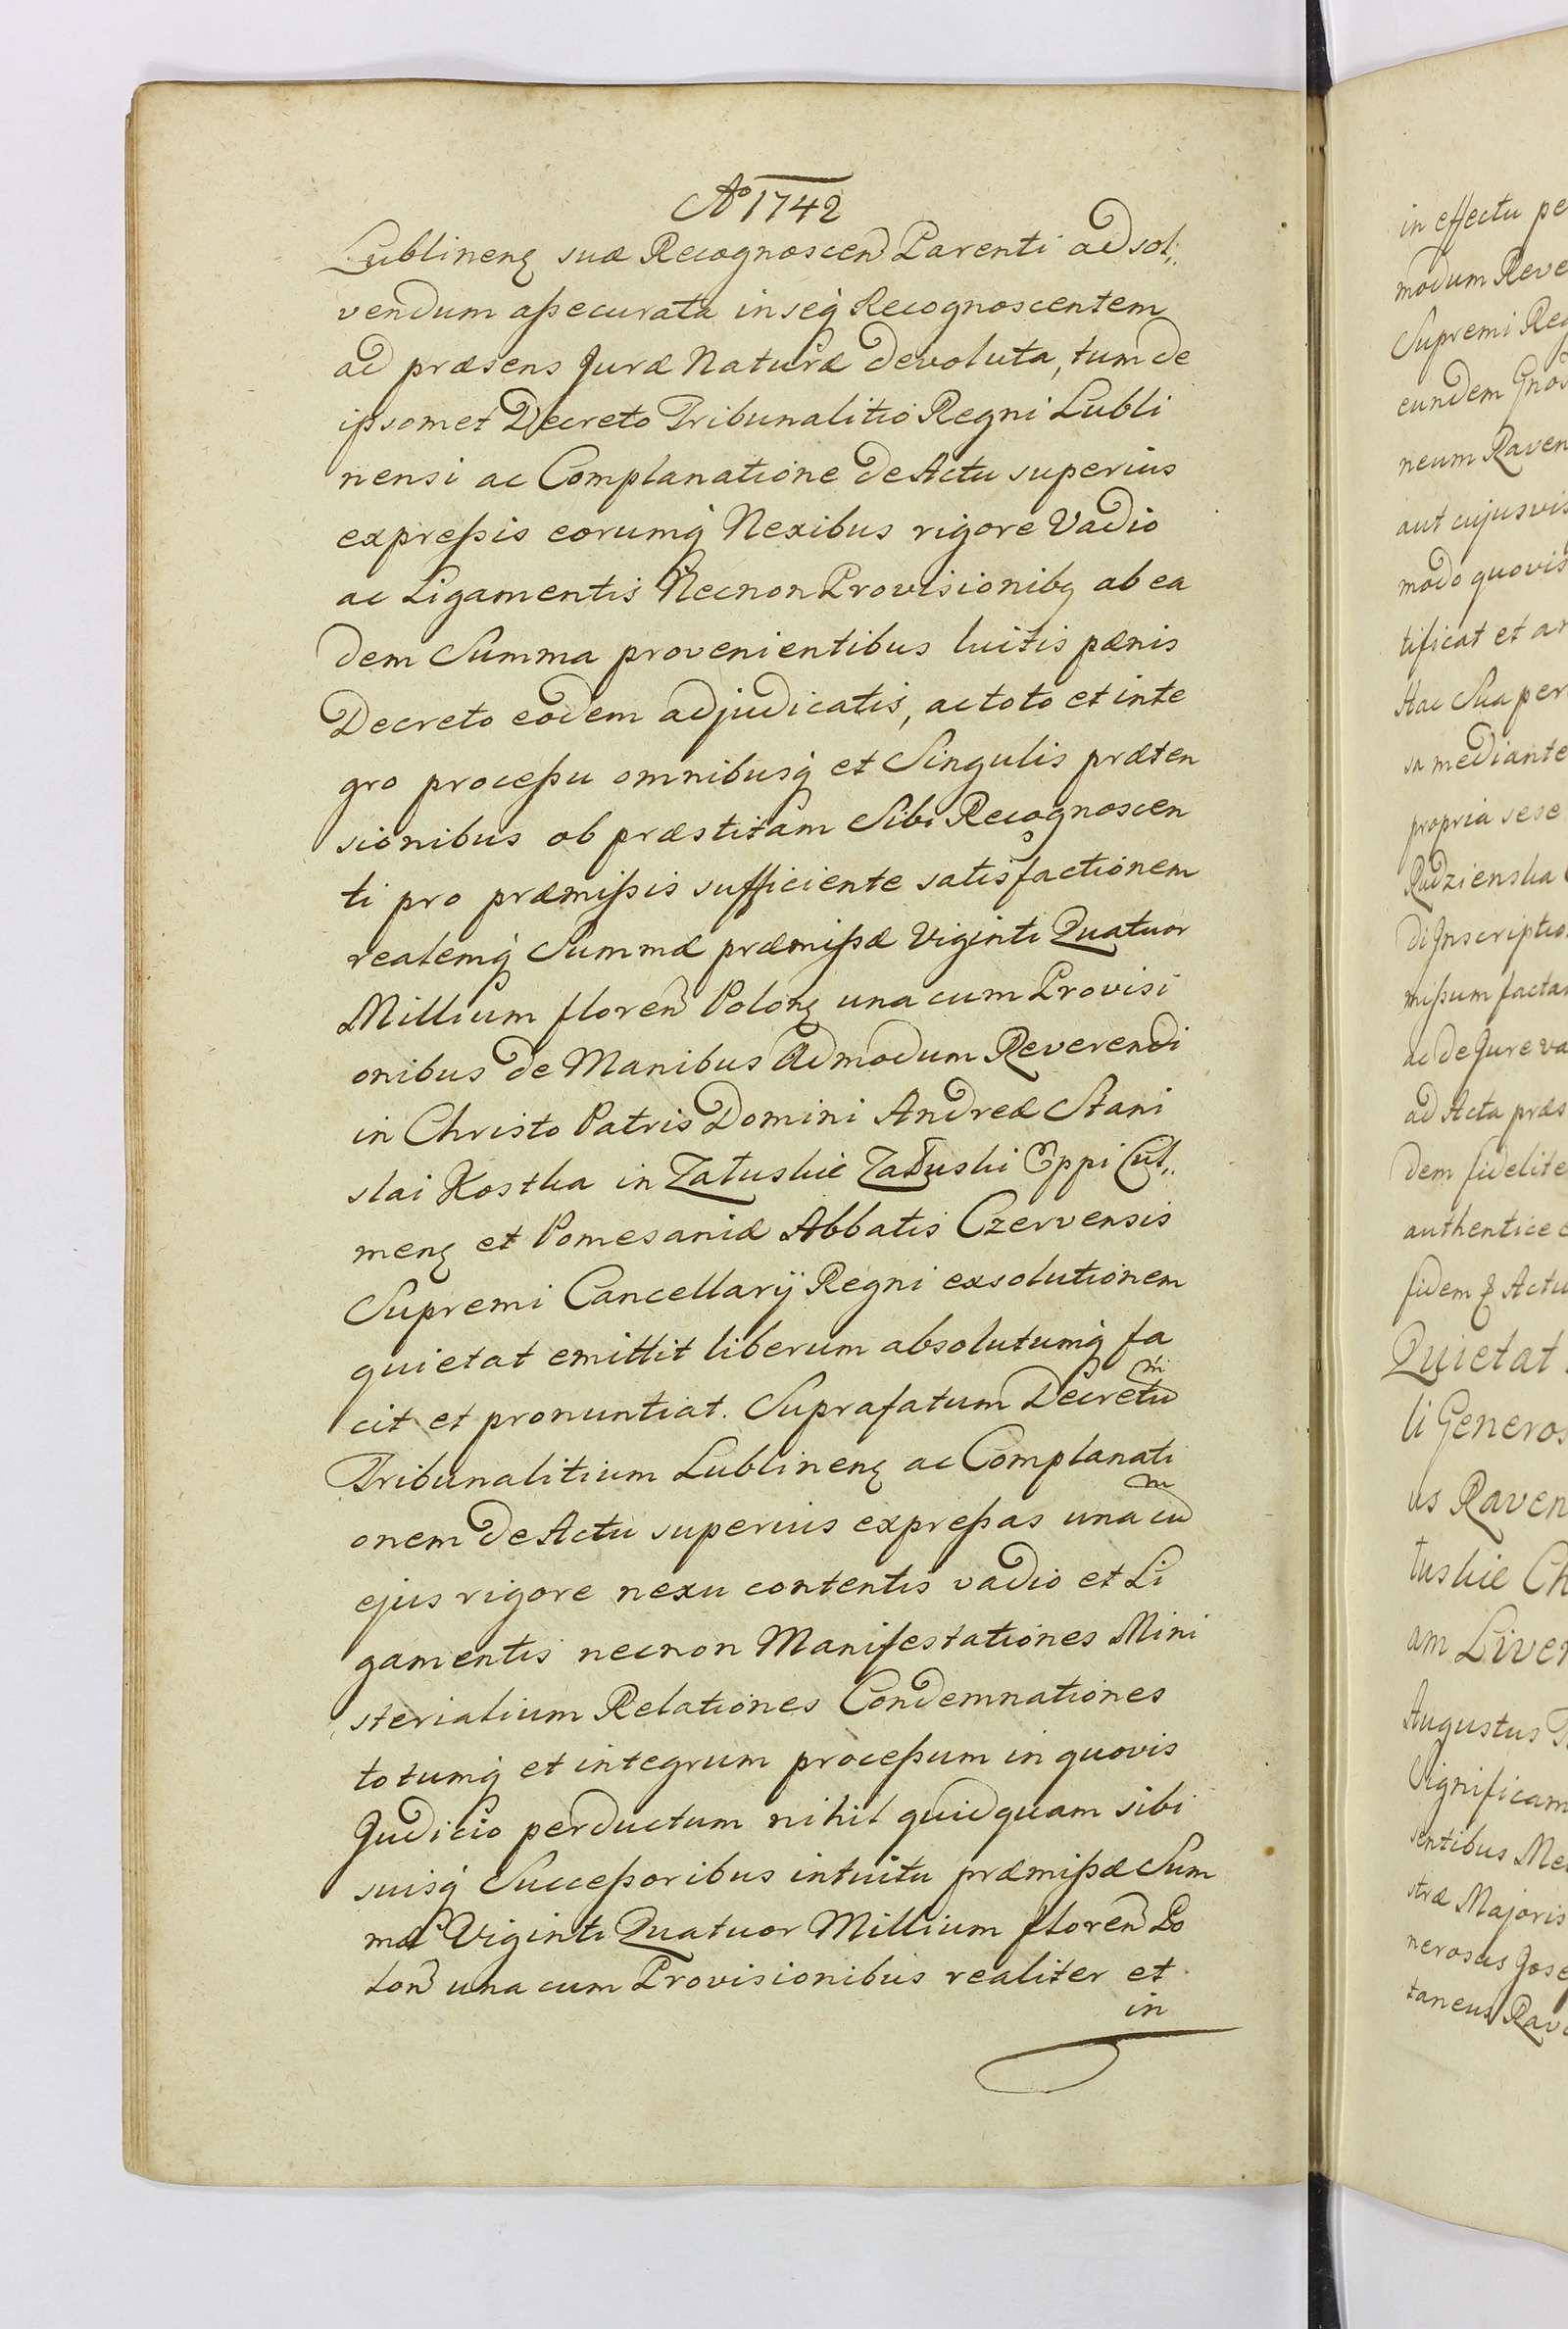 Aº 1742
Lublinenꝫ suæ Recognoscen Parenti ad sol„
vendum aßecurata in seq̨ Recognoscentem
ad præsens Juræ Naturæ devoluta, tum de
ipsomet Decreto Tribunalitio Regni Lubli
nensi ac Complanatione de Actu superius
expreßis eorumq̨ Nexibus rigore Vadio
ac Ligamentis Necnon Provisionibꝫ ab ea
dem Summa provenientibus luitis pænis
Decreto eodem adjudicatis, ac toto et inte
gro proceßu omnibusq̨ et Singulis præten
sionibus ob præstitam Sibi Recognoscen
ti pro præmißis sufficiente satisfactionem
realemq̨ Summæ præmißæ Viginti Quatuor
Millium floren Polonꝫ una cum Provisi
onibus de Manibus Admodum Reverendi
in Christo Patris Domini Andreæ Stani
slai Kostka in Załuskie Załuski Eppi Cul„
menꝫ et Pomesaniæ Abbatis Czervensis
Supremi Cancellarij Regni exsolutionem
quietat emittit liberum absolutumq̨ fa
cit et pronuntiat. Suprafatum Decretum
Tribunalitium Lublinenꝫ ac Complanati
onem de Actu superius expreßas una cum
ejus rigore nexu contentis vadio et Li
gamentis necnon Manifestationes Mini
sterialium Relationes Condemnationes
totumq̨ et integrum proceßum in quovis
Judicio perductum nihil quidquam sibi
suisq̨ Succeßoribus intuitu præmißæ Sum
mæ Viginti Quatuor Millium floren Po
lon una cum Provisionibus realiter et
in
in effectu pe
modum Reve
Supremi Reg
eundem Gnos
neum Raven
aut cujusvis
modo quovis
tificat et ar
Hac Sua per
sa mediante
propria sese
Rudzienska
di Inscriptio
mißum factam
ac de Jure va
ad Acta præs
dem fidelite
authentice e
fidem Actu
Quietat
li Generos
us Raven
tuskie Ch
am Liver
Augustus
Significam
sentibus
stræ Majoris
nerosus Jose
taneus Rav